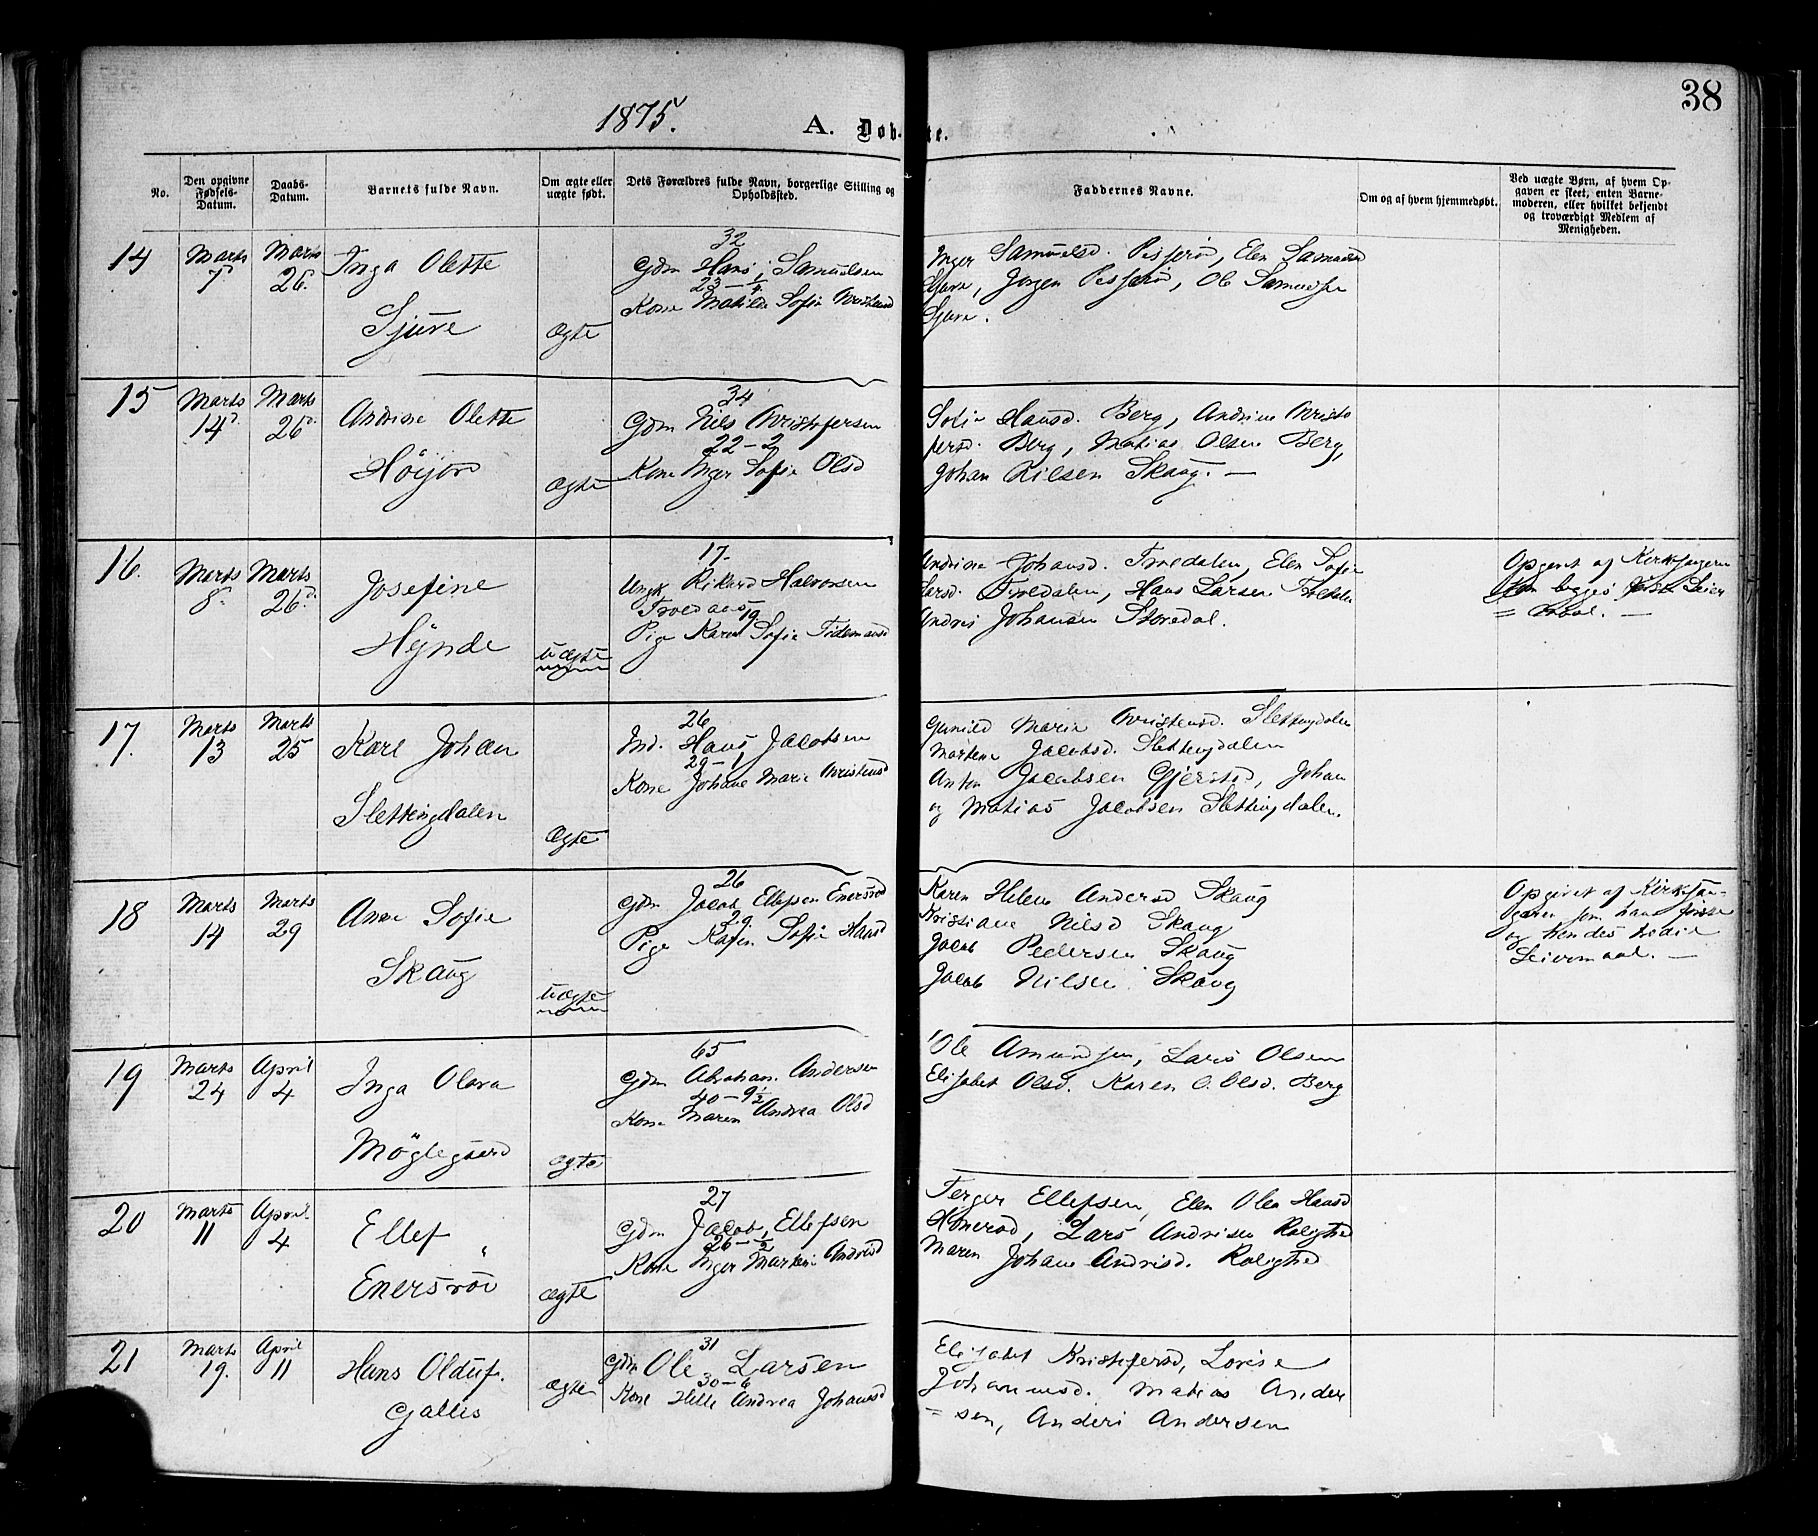 38
1875.
A. Døb- te.
No.
Den opgivne Fødsels-Datum.
Daabs-Datum.
Barnets fulde Navn.
Om ægte eller uægte født.
Dets Forældres fulde Navn, borgerlige Stilling og Opholdssted.
Faddernes Navne.
Om og af hvem hjemmedøbt.
Ved uægte Børn, af hvem Opgaven er skeet, enten Barnemoderen, eller hvilket bekjendt og troværdigt Medlem af Menigheden.
14 Marts 7. Marts 26.
Inga Olette
Sjuve
Ægte
32
Gdm Hans Samuelsen
23 –
Kone Matilde Sofie
Inger Samuelsd.
Jørgen Ole
15 Marts 14d. Marts 26d.
Andrine Olette
Höijord
Ægte
34
Gdm Nils Kristofersen
22 – 2
Kone Inger Sofie Olsd
Hansd. Berg, Andrine Kristo
fersd. Berg, Matias Olsen Berg,
Johan Nilsen Skaug. —
16. Marts 8. Marts 26d.
Josefine
Hynde
Uægte
17.
Ungk. Rikard Halvorsen
19
Pige Karen Sofie
Andrine Johansd. Troedalen, Elen Sofie
Larsd. Troedalen, Hans Larsen
Andris Johansen
Opgivet af Kirkesangeren
begges første Leier
= maal. —
17. Marts 13 Marts 25
Karl Johan
Slettingdalen
Ægte
26
Ind. Hans Jacobsen
29 – 1
Kone Johane Marie Kristensd
Gunild Maria Kristensd. Slettingdalen
Martene Jacobsd. Slettingdalen
Anton Jacobsen Gjerstad, Johan
og Matias Jacobsen Slettingdalen.
18 Marts 14 Marts 29
Anne Sofie
Skaug
Uægte
26
Gdm Jacob Ellefsen Enersröd
29
Pige Karen Sofie Hansd
Karen Helene Andersd Skaug
Kristiane Nilsd Skaug
Jacob Pedersen Skaug
Jacob Nilsen Skaug
Opgivet af Kirkesan-
geren som hans første
og hendes tredie
Leiermaal. —
19 Marts 24 April 4
Inga Olava
Möglegaard
ægte
65
Gdm Abraham Andersen
40 – 9½
Kone Maren Andrea Olsd
Ole Amundsen, Lars Olsen
Elisabet Olsd. Karen O. Olsd. Berg
20 Marts 11 April 4
Ellef
Enersröd
ægte
27
Gdm Jacob Ellefsen
26 – ½
Kone Inger Martine Andrisd
Terger Ellefsen, Elen Olea Hansd
Lars Andrisen Rolighed
Maren Johane Andrisd. Rolighed
21 Marts 19. April 11
Hans Olduf.
Gallis
ægte
31
Gdm Ole Larsen
30 – 6
Kone Helle Andrea Johansd
Elisabet Kristofersd, Lovise
Johannesd. Matias Ander
= sen, Anders Andersen